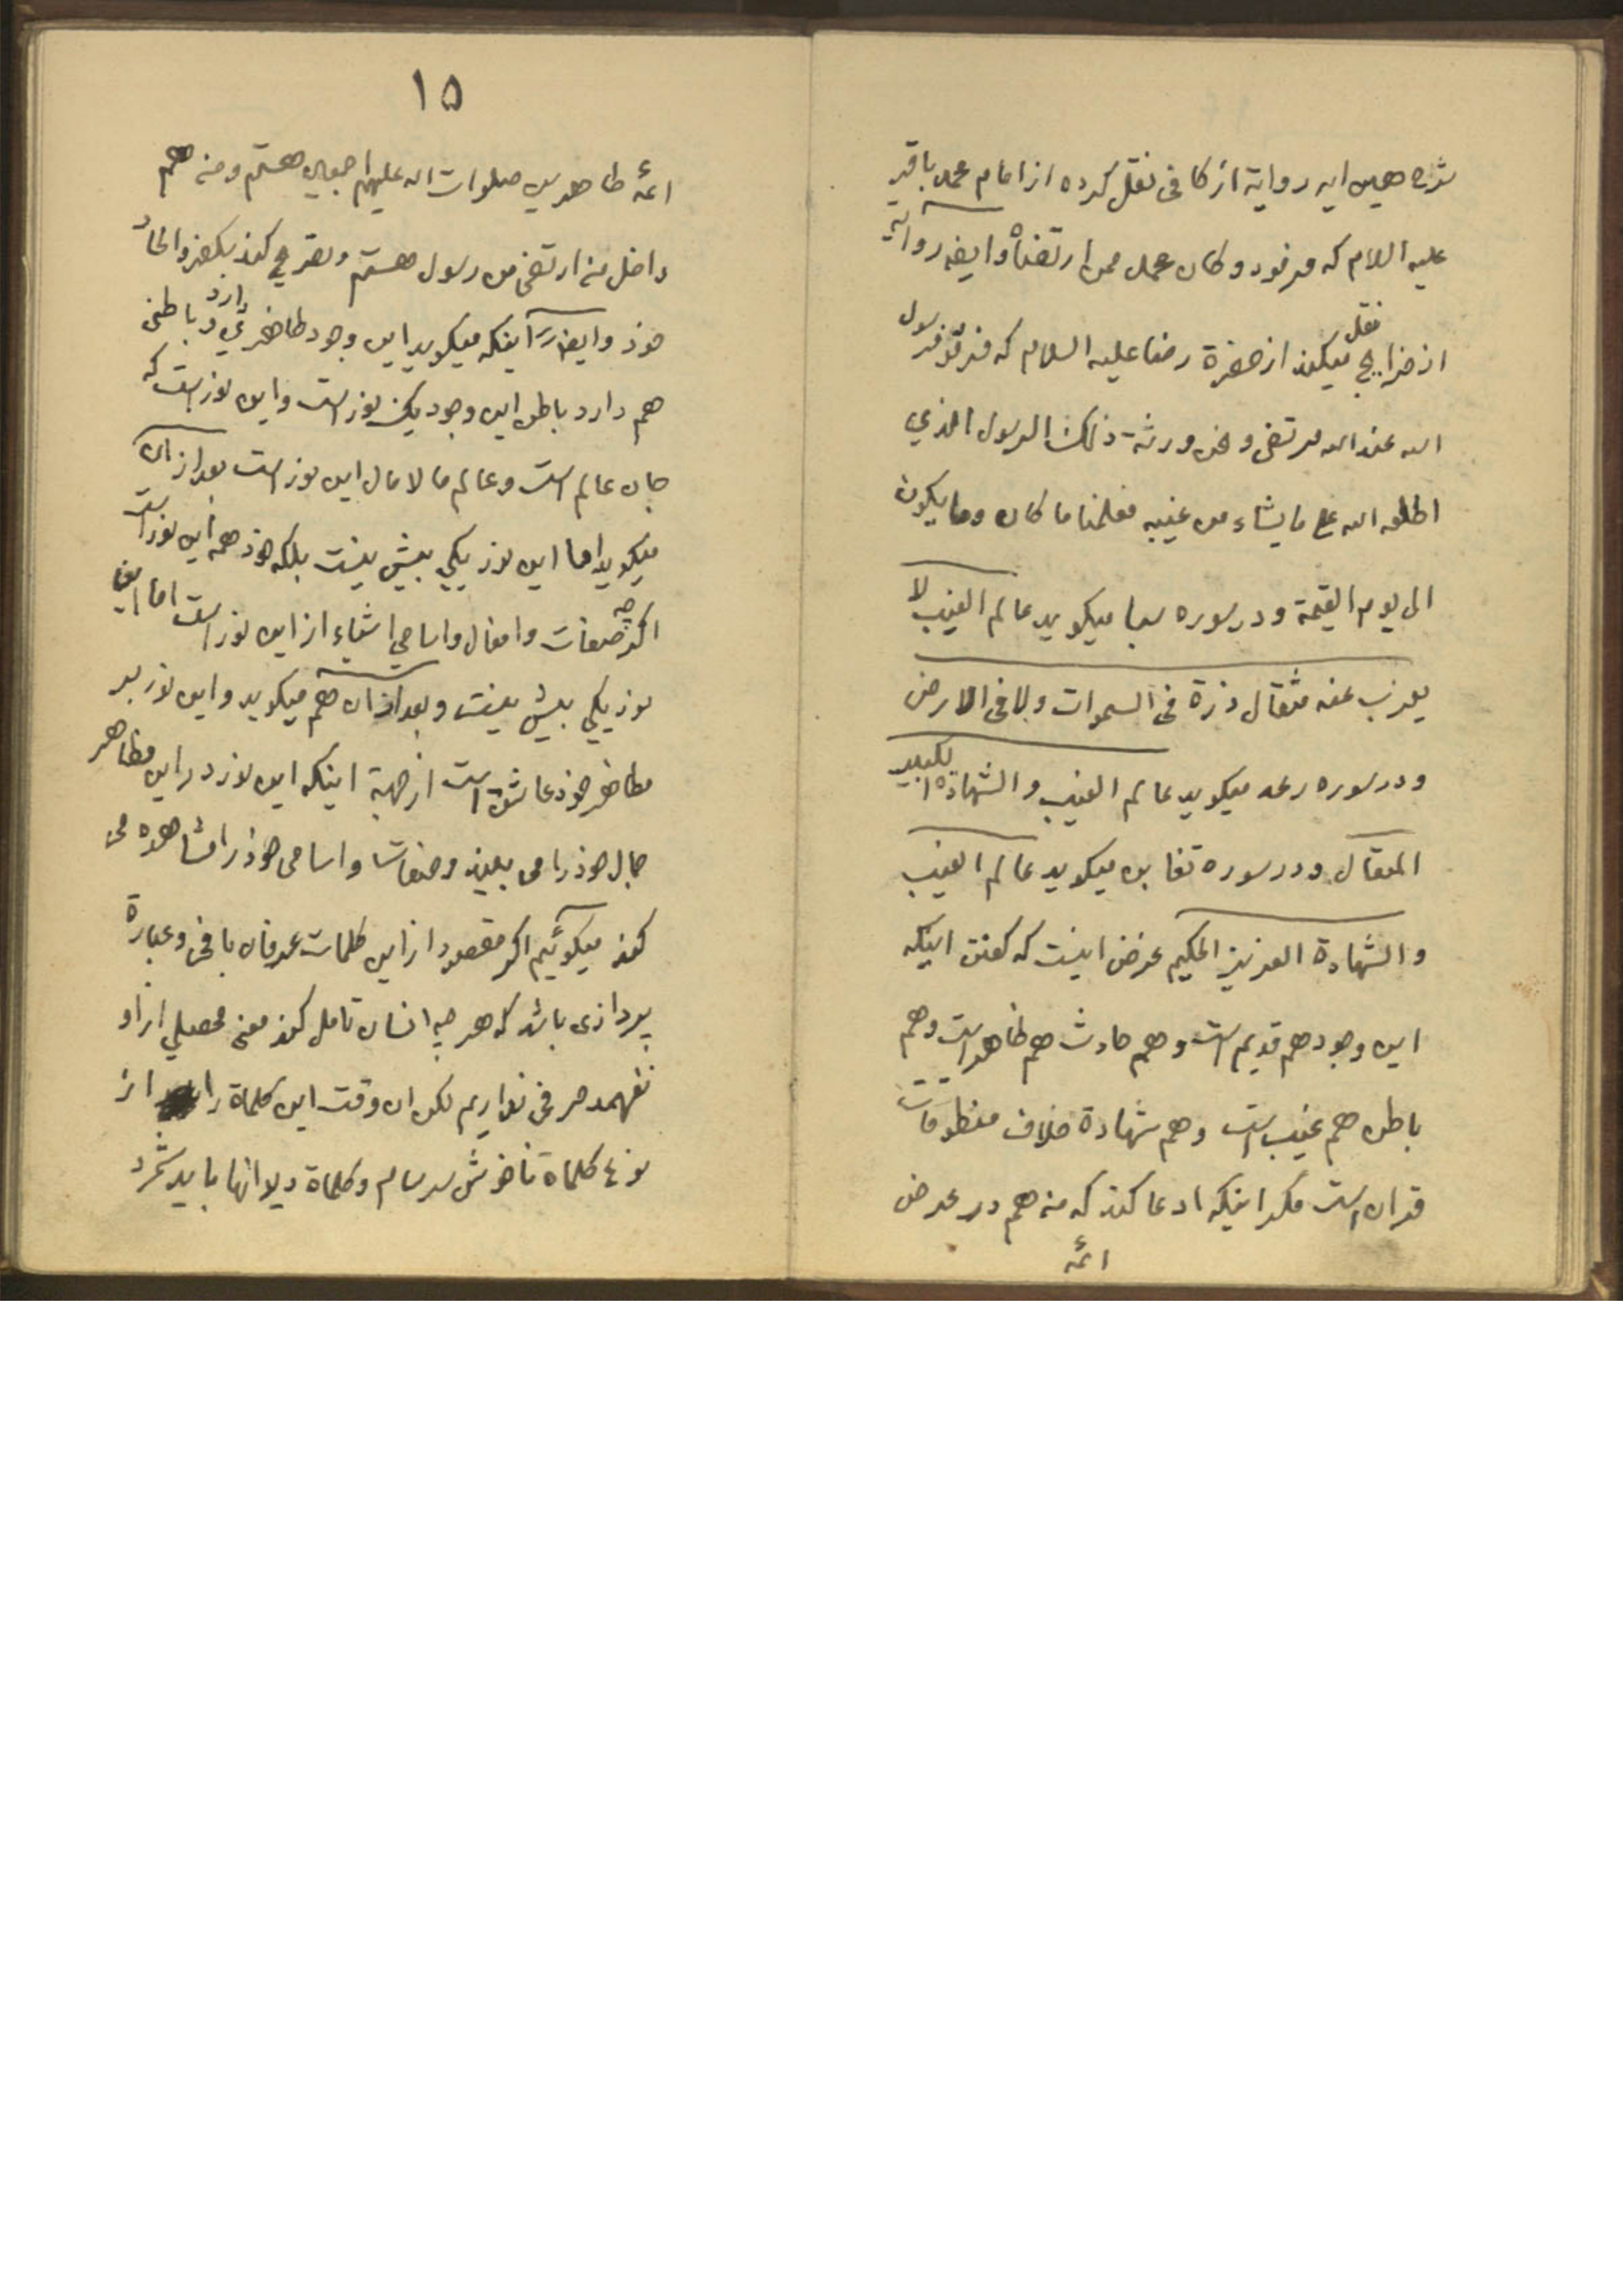 شرح همین ایه روایة از کافی نقل کرده از امام محمد باقر
علیه السلام که فرمود و کان محمد ممن ارتضاه و ایضا روایتی
از خرایج نقل میکند از حضرة رضا علیه السلام که فرمود فرسول
الله عند الله مرتضی و نحن ورثة ذلک الرسول الذي
اطلعه الله علی ما یشاء من غیبه فعلمنا ما کان وما یکون
الی یوم القیمة و در سوره سبا میکوید عالم الغیب لا
یعزب عنه مثقال ذرة فی السموات ولا فی الارض
و در سوره رعد میکوید عالم الغیب و الشهادة الکبیر
المتعال و در سوره تغابن میکوید عالم الغیب
و الشهادة العزیز الحکیم غرض اینست که کفتن اینکه
این وجود هم قدیم است و هم حادث هم ظاهر است و هم
باطن هم غیب است و هم شهادة خلاف منطوقات
قران است مکر اینکه ادعا کند که من هم در عرض
ائمه
۱۵
ائمه طاهرین صلوات الله علیهم اجمعین هستم و من هم
داخل من ارتضی من رسول هستم و تصریح کند بکفر و الحاد
خود و ایضا اینکه میکوید این وجود ظاهري دارد و باطنی
هم دارد باطن این وجود یک نور است و این نور است که
جان عالم است و عالم مالامال این نور است بعد از ان
میکوید اما این نور یکي بیش نیست بلکه خود همه این نور است
اکر چه صفات و افعال و اسامي اشیاء از این نور است اما این
نور یکي بیش نیست و بعد از ان هم میکوید و این نور بر
مظاهر خود عاشق است از جهة اینکه این نور در این مظاهر
جمال خود را می بیند و صفات و اسامی خود را مشاهده می
کند میکوئیم اکر مقصود از این کلمات عرفان بافی و عبارة
پردازی باشد که هر چه انسان تامل کند معنی محصلي از او
نفهمد حرفی نداریم لکن ان وقت این کلماة را از
نوع کلماة ناخوش سرسام و کلماة دیوانها باید شمرد